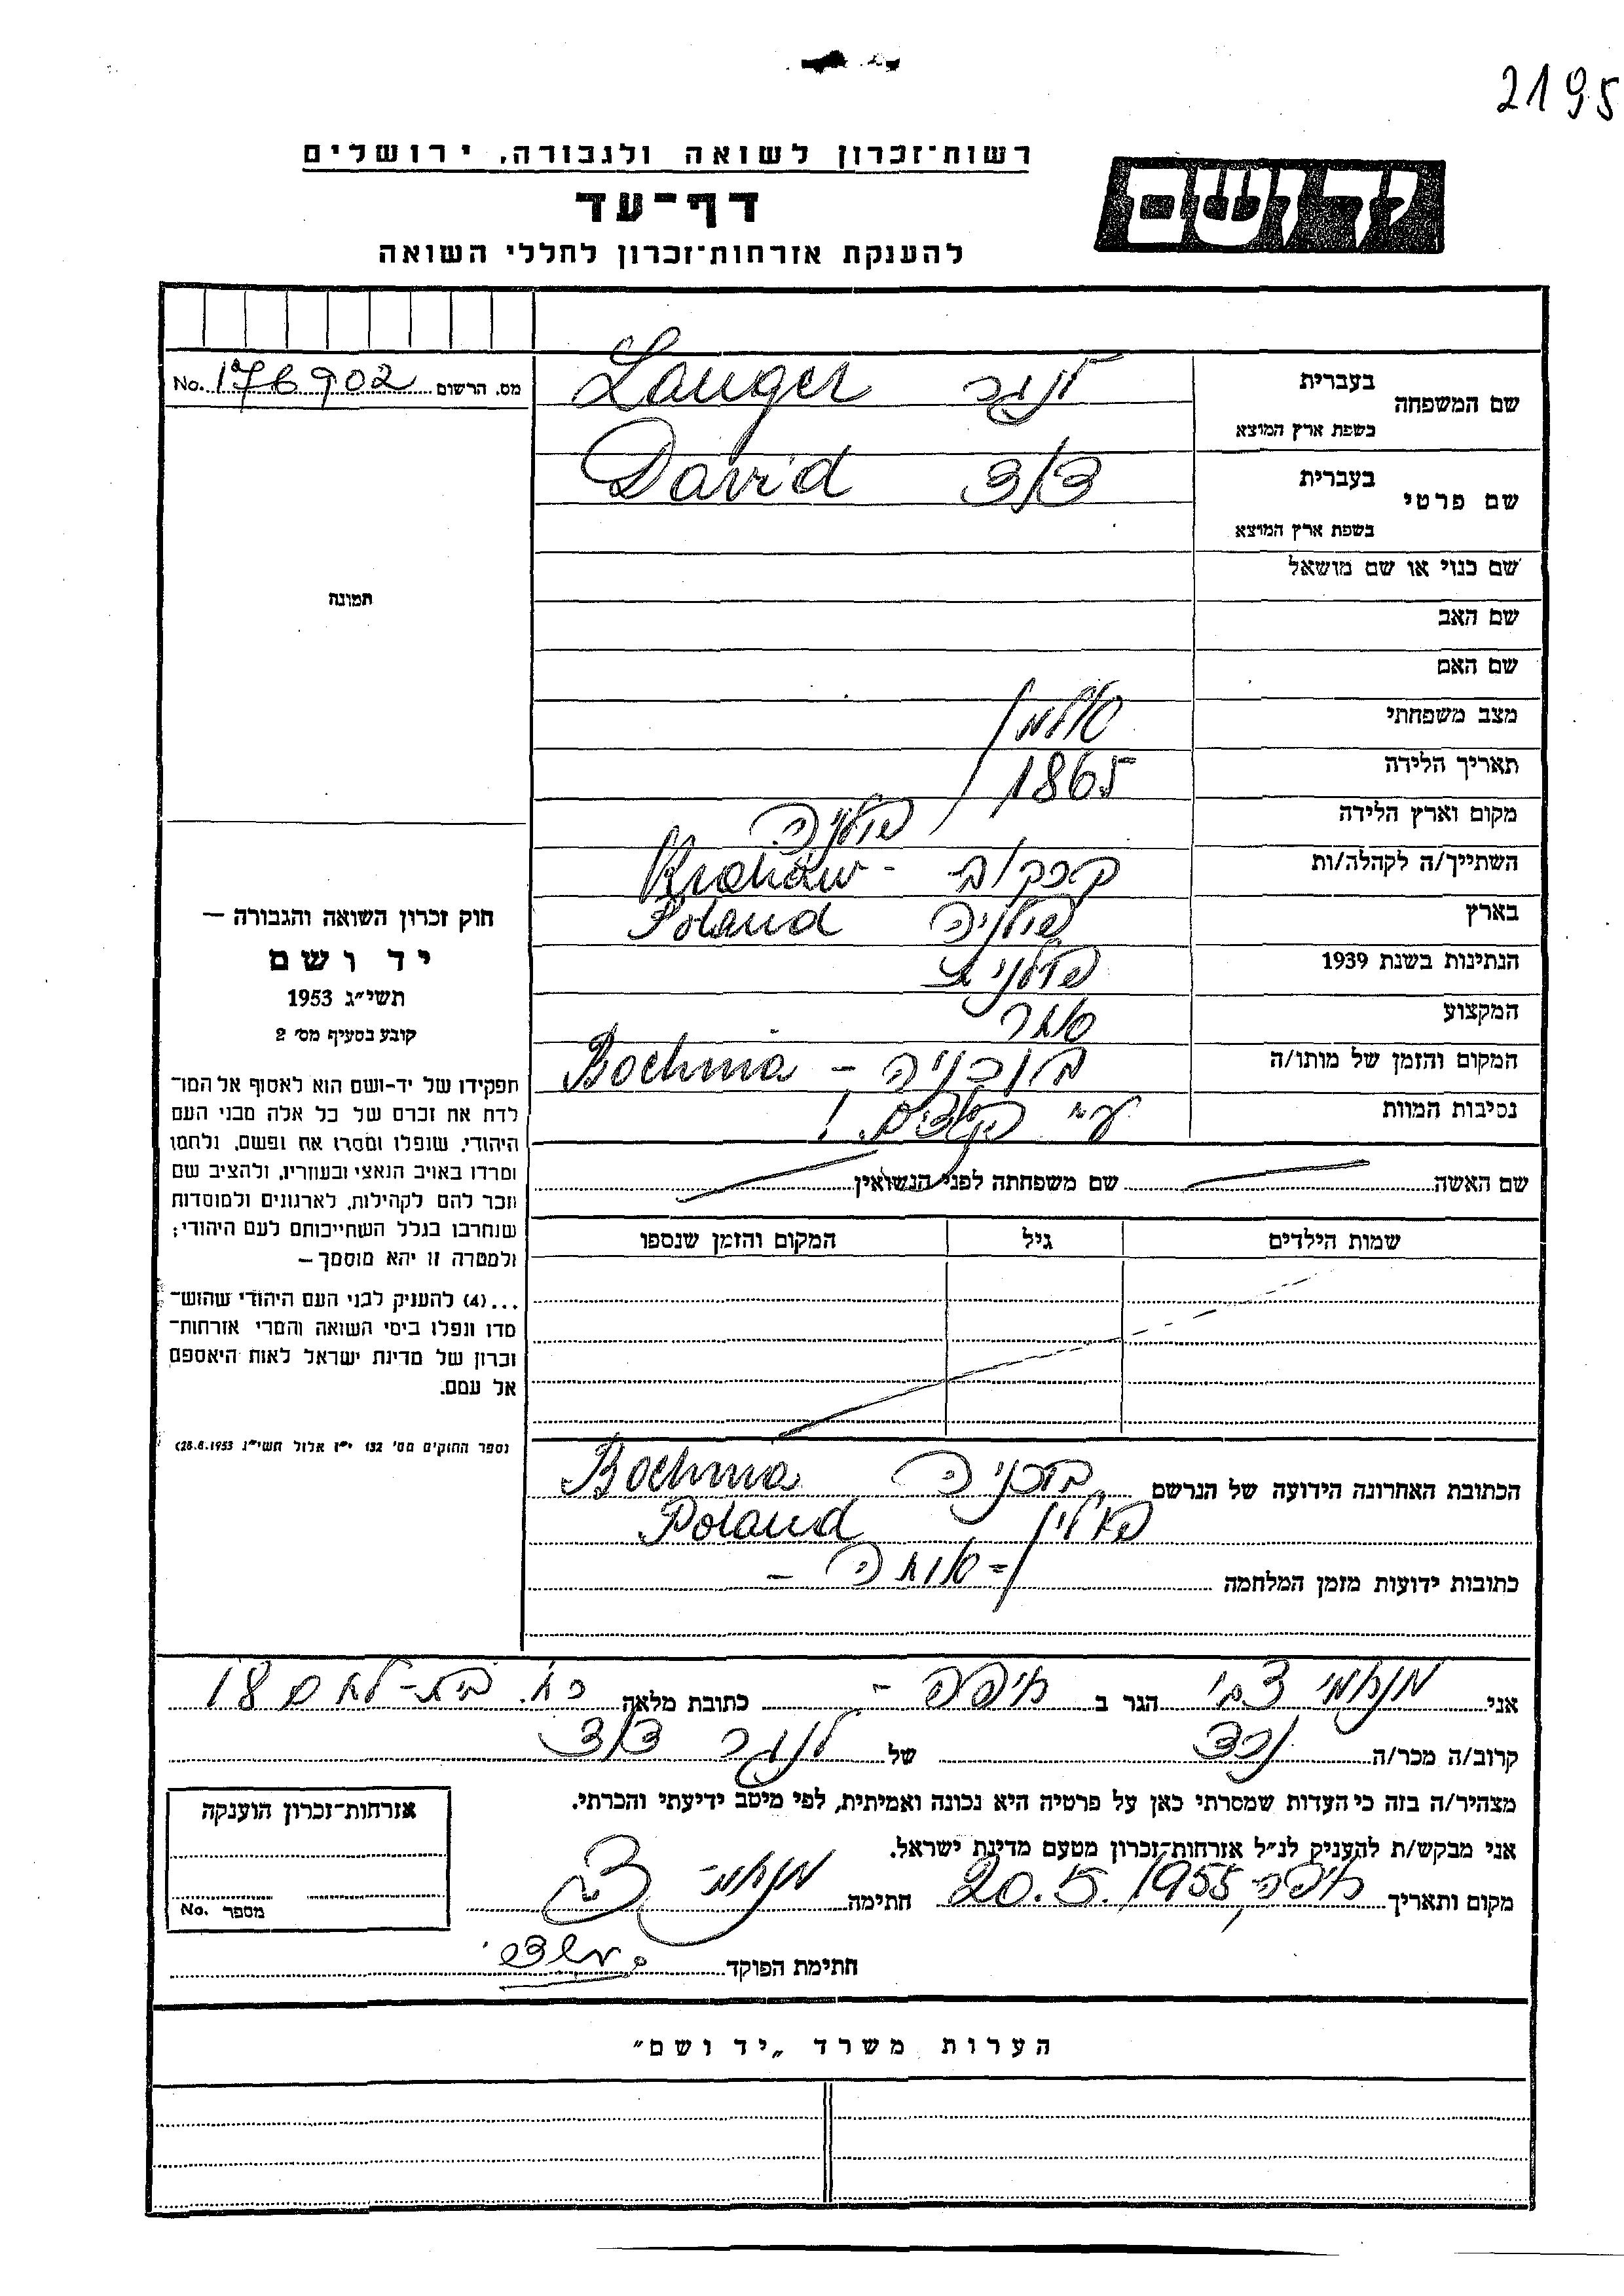 2195
רשות־זכרון לשואה ולגבורה, ירושלים
יד ושם
דף־עד
להענקת אזרחות־זכרון לחללי השואה
מס. הרשום No. 176902
שם המשפחה בעברית לנגר Langer
בשפת ארץ המוצא
שם פרטי בעברית דוד David
בשפת ארץ המוצא
שם כנוי או שם מושאל
שם האב
שם האם
מצב משפחתי אלמן
תאריך הלידה 1865
מקום וארץ הלידה פולניה
השתייך/ה לקהלה/ות קרקוב - Krakow
בארץ פולניה Poland
הנתינות בשנת 1939 פולנית
המקצוע סוחר
המקום והזמן של מותו/ה בוכניה - Bochnia
נסיבות המוות ע"י
שם האשה
שם משפחתה לפני הנשואין
שמות הילדים גיל המקום והזמן שנספו
הכתובת האחרונה הידועה של הנרשם בוכניה Bochnia
פולין Poland
כתובות ידועות מזמן המלחמה = אותה -
תמונה
חוק זכרון השואה והגבורה —
יד ושם
תשי״ג 1953
קובע בסעיף מס׳ 2
תפקידו של יד-ושם הוא לאסוף אל המו־
לדת את זכרם של כל אלה מבני העם
היהודי, שנפלו ומסרו את נפשם, נלחמו
ומרדו באויב הנאצי ובעוזריו, ולהציב שם
וזכר להם לקהילות, לארגונים ולמוסדות
שנחרבו בגלל השתייכותם לעם היהודי;
ולמטרה זו יהא מוסמך—
...(4) להעניק לבני העם היהודי שהוש־
מדו ונפלו בימי השואה והמרי אזרחות־
זכרון של מדינת ישראל לאות היאספם
אל עמם.
(ספר החוקים מס׳ 132 י״ז אלול תשי״ג 28.8.1953)
אני צבי הגר ב חיפה - כתובת מלאה רח. בית-לחם 18
קרוב/ה מכר/ה נכד של לנגר דוד
מצהיר/ה בזה כי העדות שמסרתי כאן על פרטיה היא נכונה ואמיתית, לפי מיטב ידיעתי והכרתי.
אני מבקש/ת להעניק לנ״ל אזרחות־זכרון מטעם מדינת ישראל.
מקום ותאריך חיפה, 20.5.1955 חתימה צבי
חתימת הפוקד
אזרחות־זכרון הוענקה
מספר No.
הערות משרד „יד ושם״